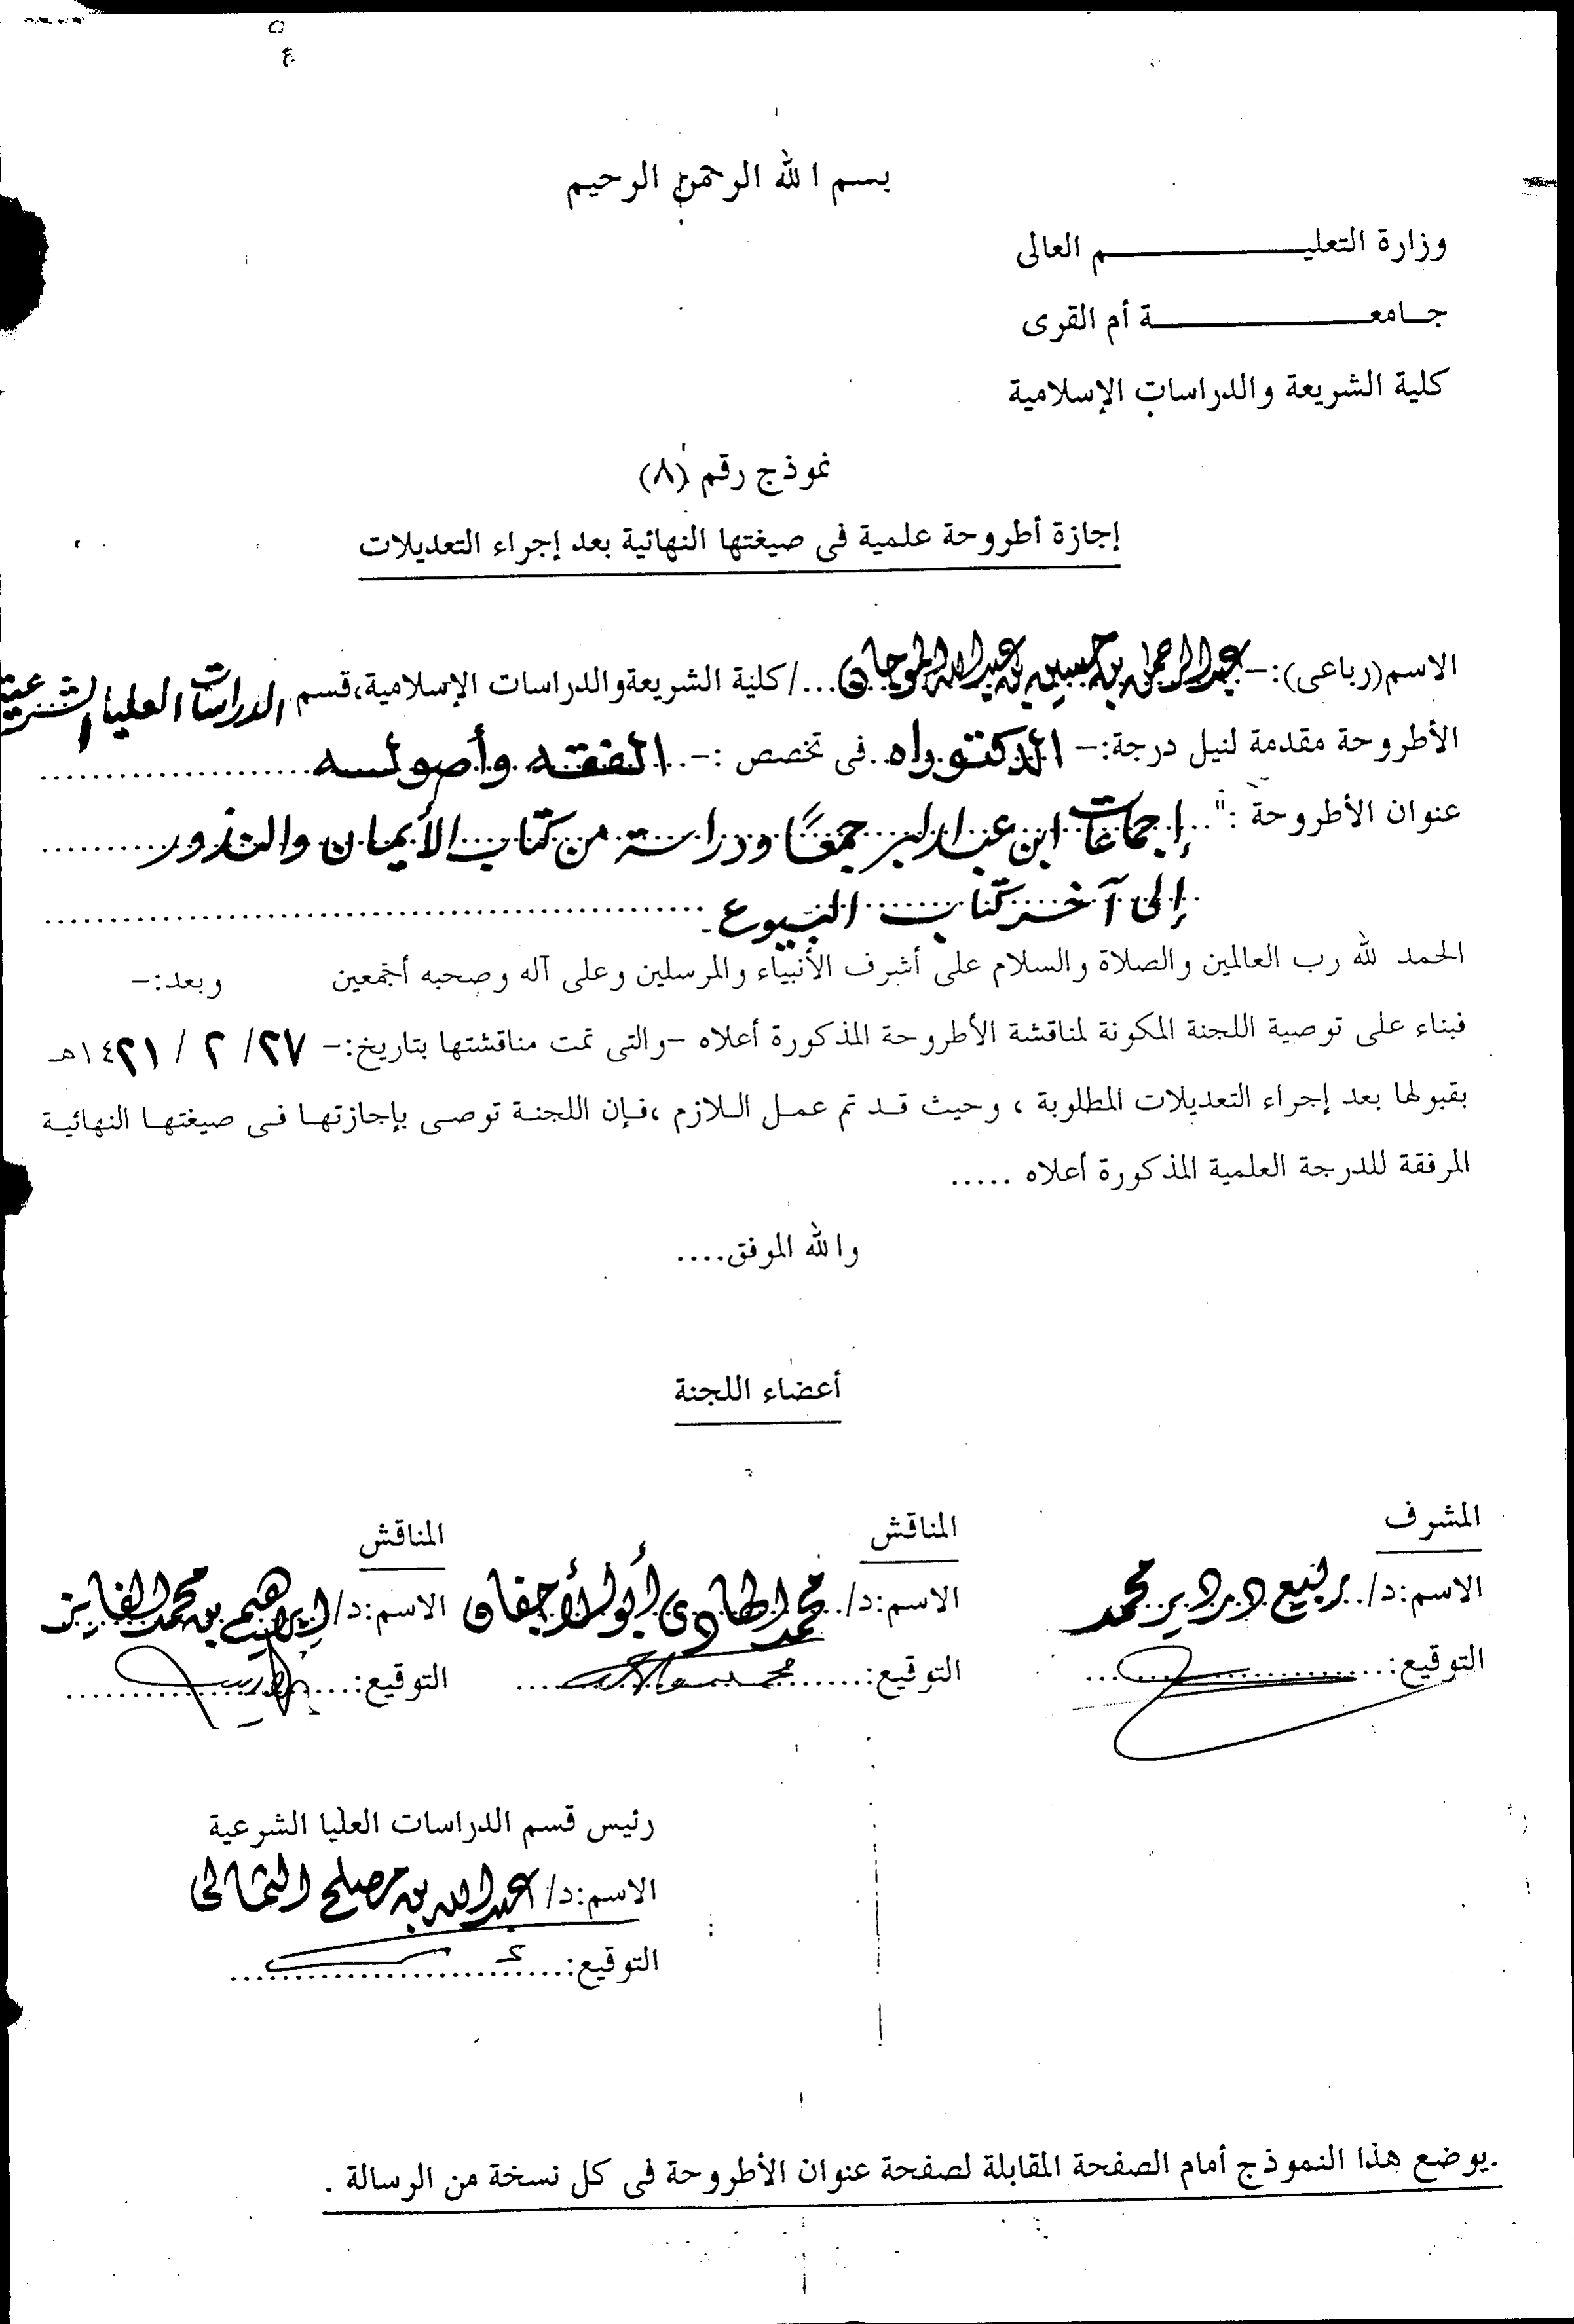 بسم الله الرحمن الرحيم
وزارة التعليم العالى
جامعة أم القرى
كلية الشريعة والدراسات الإسلامية
نموذج رقم (٨)
إجازة أطروحة علمية فى صيغتها النهائية بعد إجراء التعديلات
الاسم(رباعى):- عبد الرحمن بن حسين بن عبد الله الموجان.../كلية الشريعة والدراسات الإسلامية،قسم الدراسات العليا الشرعية
الأطروحة مقدمة لنيل درجة:- الدكتوراه..فى تخصص :-..الفقه وأصوله....................
عنوان الأطروحة :"..إجماعات ابن عبد البر جمعًا ودراسة من كتاب الأيمان والنذور...........
إلى آخر كتاب البيوع..................................................
الحمد لله رب العالمين والصلاة والسلام على أشرف الأنبياء والمرسلين وعلى آله وصحبه أجمعين وبعد:-
فبناء على توصية اللجنة المكونة لمناقشة الأطروحة المذكورة أعلاه -والتى تمت مناقشتها بتاريخ:- ٢٧/ ٢ / ١٤٢١هـ
بقبولها بعد إجراء التعديلات المطلوبة ، وحيث قد تم عمل اللازم ،فإن اللجنة توصى بإجازتها فى صيغتها النهائية
المرفقة للدرجة العلمية المذكورة أعلاه .....
والله الموفق....
أعضاء اللجنة
المشرف
الاسم:د/..ربيع دردير محمد
التوقيع:........................
المناقش
الاسم:د/..محمد الهادى أبو الأجفان
التوقيع:........................
المناقش
الاسم:د/إبراهيم بن محمد الفايز
التوقيع:........................
رئيس قسم الدراسات العليا الشرعية
الاسم:د/ عبد الله بن مصلح الثمالى
التوقيع:..........................
.يوضع هذا النموذج أمام الصفحة المقابلة لصفحة عنوان الأطروحة فى كل نسخة من الرسالة .